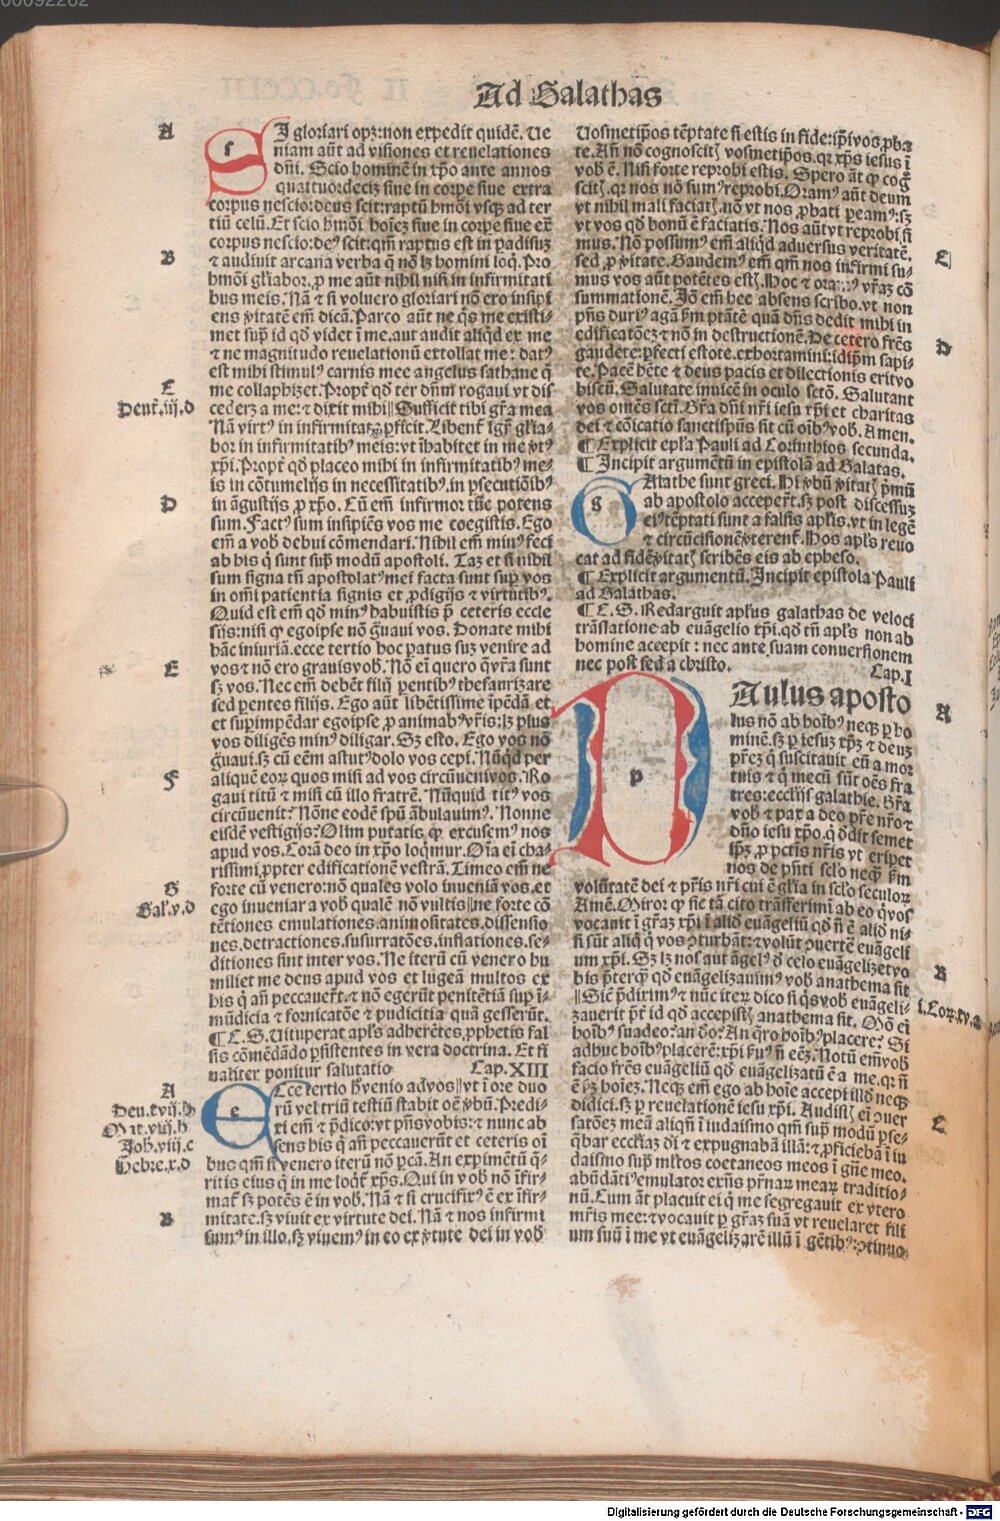 00092262
Ad Galathas
A
SI gloriari opꝫ: non expedit quidē. Ue
niam aūt ad visiones et reuelationes
dñi. Scio hominē in xp̄o ante annos
quatuordecīꝫ siue in corꝑe siue extra
corpus nescio: deus scit: raptū hmōi vsqꝫ ad ter
tiū celū. Et scio hmōi hoīeꝫ siue in corꝑe siue ex̄
corpus nescio: deꝰ scit: qm̄ raptus est in padisuꝫ
B
⁊ audiuit arcana verba q̄ nō lꝫ homini loq̄. Pro
hmōi gl̄iabor. ꝓ me aūt nihil nisi in infirmitati
bus meis. Nā ⁊ si voluero gloriari nō ero insipi
ens v̄itatē em̄ dicā. Parco aūt ne q̄s me existi-
met sup̄ id qd̄ videt ī me. aut audit aliqd̄ ex me
⁊ ne magnitudo reuelationū extollat me: datꝰ
est mihi stimulꝰ carnis mee angelus sathane q̄
C
me collaphiꝫet. Propt̄ qd̄ ter dn̄m rogaui vt dis
Deut̄.iij.d
cederꝫ a me: ⁊ dixit mihi ‖ Sufficit tibi gr̄a mea
Nā virtꝰ in infirmitate ꝑficit. Libent̄ igr̄ gl̄ia-
bor in infirmitatibꝰ meis: vt īhabitet in me v̄tꝰ
xp̄i. Propt̄ qd̄ placeo mihi in infirmitatibꝰ me-
is in cōtumelijs in necessitatibꝰ. in ꝑsecutiōibꝰ
D
in āgustijs ꝓ xp̄o. Cū em̄ infirmor tūc potens
sum. Factꝰ sum insipiēs vos me coegistis. Ego
em̄ a vob̄ debui cōmendari. Nihil em̄ minꝰ feci
ab his q̄ sunt sup̄ modū apostoli. Taꝫ et si nihil
sum signa tn̄ apostolatꝰ mei facta sunt sup̄ vos
in om̄i patientia signis et ꝓdigijs ⁊ virtutibꝰ.
Quid est em̄ qd̄ minꝰ habuistis p̄ ceteris eccle
sijs: nisi ꝙ egoipse nō ḡuaui vos. Donate mihi
hāc iniuriā. ecce tertio hoc paratus suꝫ venire ad
E
vos ⁊ nō ero grauis vob̄. Nō eī quero q̄ vr̄a sunt
sꝫ vos. Nec em̄ debēt filij parentibꝰ thesauriꝫare
sed parentes filijs. Ego aūt libētissime īpēdā et
et superimpēdar egoipse ꝓ animabꝰ vr̄is: lꝫ plus
vos diligēs minꝰ diligar. Sꝫ esto. Ego vos nō
ḡuaui. sꝫ cū eēm astutꝰ dolo vos cepi. Nūqd̄ per
F
aliquē eoꝝ quos misi ad vos circūueni vos. Ro
gaui titū ⁊ misi cū illo fratrē. Nūquid titꝰ vos
circūuenit? Nōne eodē spū ābulauimꝰ. Nonne
eisdē vestigijs? Olim putatis ꝙ excusemꝰ nos
apud vos. Corā deo in xp̄o loq̄mur. Oīa eī cha-
rissimi ꝓpter edificationē vestrā. Timeo em̄ ne
G
forte cū venero: nō quales volo inueniā vos. et
Gal̄.v.d
ego inueniar a vob̄ qualē nō vultis ‖ ne forte cō
tētiones emulationes. animositates. dissensio
nes. detractiones. susurratōes. inflationes. se-
ditiones sint inter vos. Ne iterū cū venero hu
miliet me deus apud vos et lugeā multos ex
his q̄ añ peccauer̄t. ⁊ nō egerūt penitētiā sup̄ ī-
mūdicia ⁊ fornicatōe ⁊ pudicitia quā gesserūt.
¶ C. S. Uituperat apl̄s adherētes ꝓphetis fal
sis cōmēdādo ꝑsistentes in vera doctrina. Et fi
naliter ponitur salutatio Cap. XIII
A
ECce tertio h̄ venio ad vos ‖ vt ī ore duo
Deu.xvij.b
rū vel triū testiū stabit oē v̄bū. Predi-
Mat.xviij.b
xi em̄ ⁊ p̄dico: vt p̄ns vobis: ⁊ nunc ab
Joh.viij.c
sens his q̄ añ peccauerūt et ceteris oī
Hebre.x.d
bus qm̄ si venero iterū nō ꝑcā. An expimētū q̄-
ritis eius q̄ in me loqt̄ xp̄s. Qui in vob̄ nō īfir-
mat̄ sꝫ potēs ē in vob̄. Nā ⁊ si crucifixꝰ ē ex īfir-
B
mitate. sꝫ viuit ex virtute dei. Nā ⁊ nos infirmi
sumꝰ in illo. sꝫ viuemꝰ in eo ex v̄tute dei in vob̄
Uosmetip̄os tēptate si estis in fide: ip̄i vos ꝓba
te. An̄ nō cognoscitꝭ vosmetip̄os. qꝛ xp̄s iesus ī
vob̄ ē. Nisi forte reprobi estis. Spero āt ꝙ cog
scitꝭ. qꝛ nos nō sumꝰ reprobi. Oramꝰ aūt deum
vt nihil mali faciatꝭ. nō vt nos ꝓbati ꝑeamꝰ: sꝫ
vt vos qd̄ bonū ē faciatis. Nos aūt vt reprobi si
C
mus. Nō possumꝰ em̄ aliqd̄ aduersus veritatē.
sed ꝓ v̄itate. Gaudemꝰ em̄ qm̄ nos infirmi su-
mus vos aūt potētes estꝭ. Hoc ⁊ oramꝰ vr̄aꝫ cō
summationē. Jō em̄ hec absens scribo. vt non
p̄ns duriꝰ agā ẜm ptātē quā dn̄s dedit mihi in
D
edificatōeꝫ ⁊ nō in destructionē. De cetero fr̄es
gaudete: ꝑfecti estote. exhortamini: idip̄m sapi-
te. Pacē h̄ete ⁊ deus pacis et dilectionis erit vo
biscū. Salutate inuicē in osculo sctō. Salutant
vos om̄es sctī. Gr̄a dn̄i nr̄i iesu xp̄i et charitas
dei ⁊ cōicatio sanctispūs sit cū oībꝰ vob̄. Amen.
¶ Explicit epl̄a Pauli ad Corinthios secunda.
¶ Incipit argumētū in epistolā ad Galatas.
GAlathe sunt greci. Hi v̄bū v̄itatꝭ p̄mū
ab apostolo acceper̄t. sꝫ post discessuꝫ
eiꝰ tēptati sunt a falsis apl̄is. vt in legē
⁊ circūcisionē v̄terent̄. Hos apl̄s reuo
cat ad fidē v̄itatꝭ scribēs eis ab epheso.
¶ Explicit argumentū. Incipit epistola Pauli
ad Galathas.
¶ C. S. Redarguit apl̄us galathas de veloci
trāslatione ab euāgelio xp̄i. qd̄ tn̄ apl̄s non ab
homine accepit: nec ante suam conuersionem
nec post sed a christo. Cap. I
A
PAulus aposto
lus nō ab hoībꝰ neqꝫ ꝑ ho
minē. sꝫ ꝑ iesuꝫ xp̄ꝫ ⁊ deuꝫ
pr̄eꝫ q̄ suscitauit eū a mor
tuis ⁊ q̄ mecū sūt oēs fra
tres: eccl̄ijs galathie. Gr̄a
vob̄ ⁊ pax a deo pr̄e nr̄o ⁊
dn̄o iesu xp̄o. q̄ dedit semet
ip̄ꝫ ꝓ pctīs nr̄is vt eripet
nos de p̄nti scl̄o neqꝫ ẜm
volūtatē dei ⁊ pr̄is nr̄i cui ē gl̄ia in scl̄a seculoꝝ
Amē. Miror ꝙ sic tā cito trāsferimī ab eo q̄ vos
vocauit ī gr̄aꝫ xp̄i ī aliud euāgeliū qd̄ n̄ ē aliud ni-
si sūt aliq̄ q̄ vos ꝯturbāt: ⁊ volūt ꝯuertē euāgeli
um xp̄i. Sꝫ lꝫ nos aut āgelꝰ d̄ celo euāgeliꝫet vo
B
bis p̄terq̄ qd̄ euāgeliꝫauimꝰ vob̄ anathema sit
‖ Sic̄ p̄diximꝰ ⁊ nūc iteꝝ dico si q̄s vob̄ euāgeli-
i.Coꝝ.xv.a
ꝫauerit p̄ter id qd̄ accepistꝭ anathema sit. Mō eī
hoībꝰ suadeo? an deo? An q̄ro hoībꝰ placere? Si
adhuc hoībꝰ placerē: xp̄i ẜuꝰ n̄ eēꝫ. Notū em̄ vob̄
facio fr̄es euāgeliū qd̄ euāgeliꝫatū ē a me. qꝛ n̄
ē ẜꝫ hoīeꝫ. Neqꝫ em̄ ego ab hoīe accepi illd̄ neqꝫ
didici. sꝫ ꝑ reuelationē iesu xp̄i. Audistꝭ eī ꝯuer
C
satōeꝫ meā aliqn̄ ī iudaismo qm̄ sup̄ modū ꝑse-
q̄bar eccl̄iaꝫ dī ⁊ expugnabā illā: ⁊ ꝓficiebā ī iu
daismo sup̄ ml̄tos coetaneos meos ī gn̄e meo.
abūdātiꝰ emulator exn̄s pr̄naꝝ meaꝝ traditio-
nū. Cum āt placuit ei q̄ me segregauit ex vtero
mr̄is mee: ⁊ vocauit ꝑ gr̄aꝫ suā vt reuelaret fili
um suū ī me vt euāgeliꝫarē illū ī gētibꝰ: ꝯtinuo
Digitalisierung gefördert durch die Deutsche Forschungsgemeinschaft - DFG